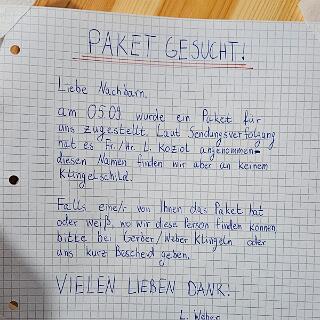 PAKET GESUCHT!
Liebe Nachbarn.
am 05.09. wurde ein Paket für
uns zugestellt. Laut Sendungsverfolgung
hat es Fr./Hr. L. Koziol angenommen –
diesen Namen finden wir aber an keinem
Klingelschild.
Falls eine/r von Ihnen das Paket hat
oder weiß, wo wir diese Person finden können,
bitte bei Gerber/Weber klingeln oder
uns kurz Bescheid geben.
VIELEN LIEBEN DANK!
L. Weber